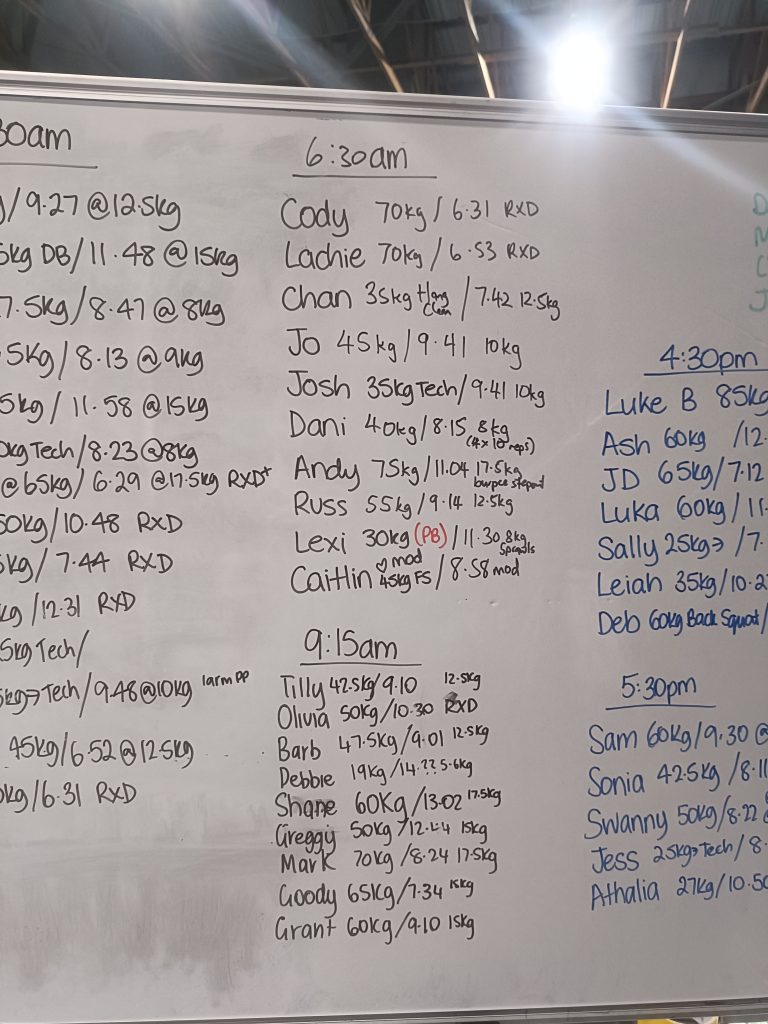 30am
/9.27 @12.5kg
5kg DB/11.48 @15kg
7.5kg/8.47 @8kg
.5kg/8.13 @9kg
5kg/11.58 @15kg
0kg Tech/8.23 @8kg
@65kg/6.29 @17.5kg RXD+
50kg/10.48 RXD
5kg/7.44 RXD
kg/12.31 RXD
.5kg Tech/
5kg→Tech/9.48@10kg 1arm PP
45kg/6.52@12.5kg
0kg/6.31 RXD
6:30am
Cody 70kg/6.31 RXD
Lachie 70kg/6.53 RXD
Chan 35kg Hang Clean/7.42 12.5kg
Jo 45kg/9.41 10kg
Josh 35kg Tech/9.41 10kg
Dani 40kg/8.15 8kg
(4x10 reps)
Andy 75kg/11.04 17.5kg
burpee stepout
Russ 55kg/9.14 12.5kg
Lexi 30kg (PB)/11.30 8kg
Caitlin mod 45kg FS/8.58 mod
9:15am
Tilly 42.5kg/9.10 12.5kg
Olivia 50kg/10.30 RXD
Barb 47.5kg/9.01 12.5kg
Debbie 19kg/14.?? 5-6kg
Shane 60kg/13.02 17.5kg
Greggy 50kg/12.44 15kg
Mark 70kg/8.24 17.5kg
Goody 65kg/7.34 15kg
Grant 60kg/9.10 15kg
D
M
C
J
4:30pm
Luke B 85kg
Ash 60kg /12.
JD 65kg/7.12
Luka 60kg/11.
Sally 25kg→/7.
Leiah 35kg/10.2
Deb 60kg Back Squat/
5:30pm
Sam 60kg/9.30 @
Sonia 42.5kg/8.11
Swanny 50kg/8.22 @
Jess 25kg→Tech/8.
Athalia 27kg/10.50